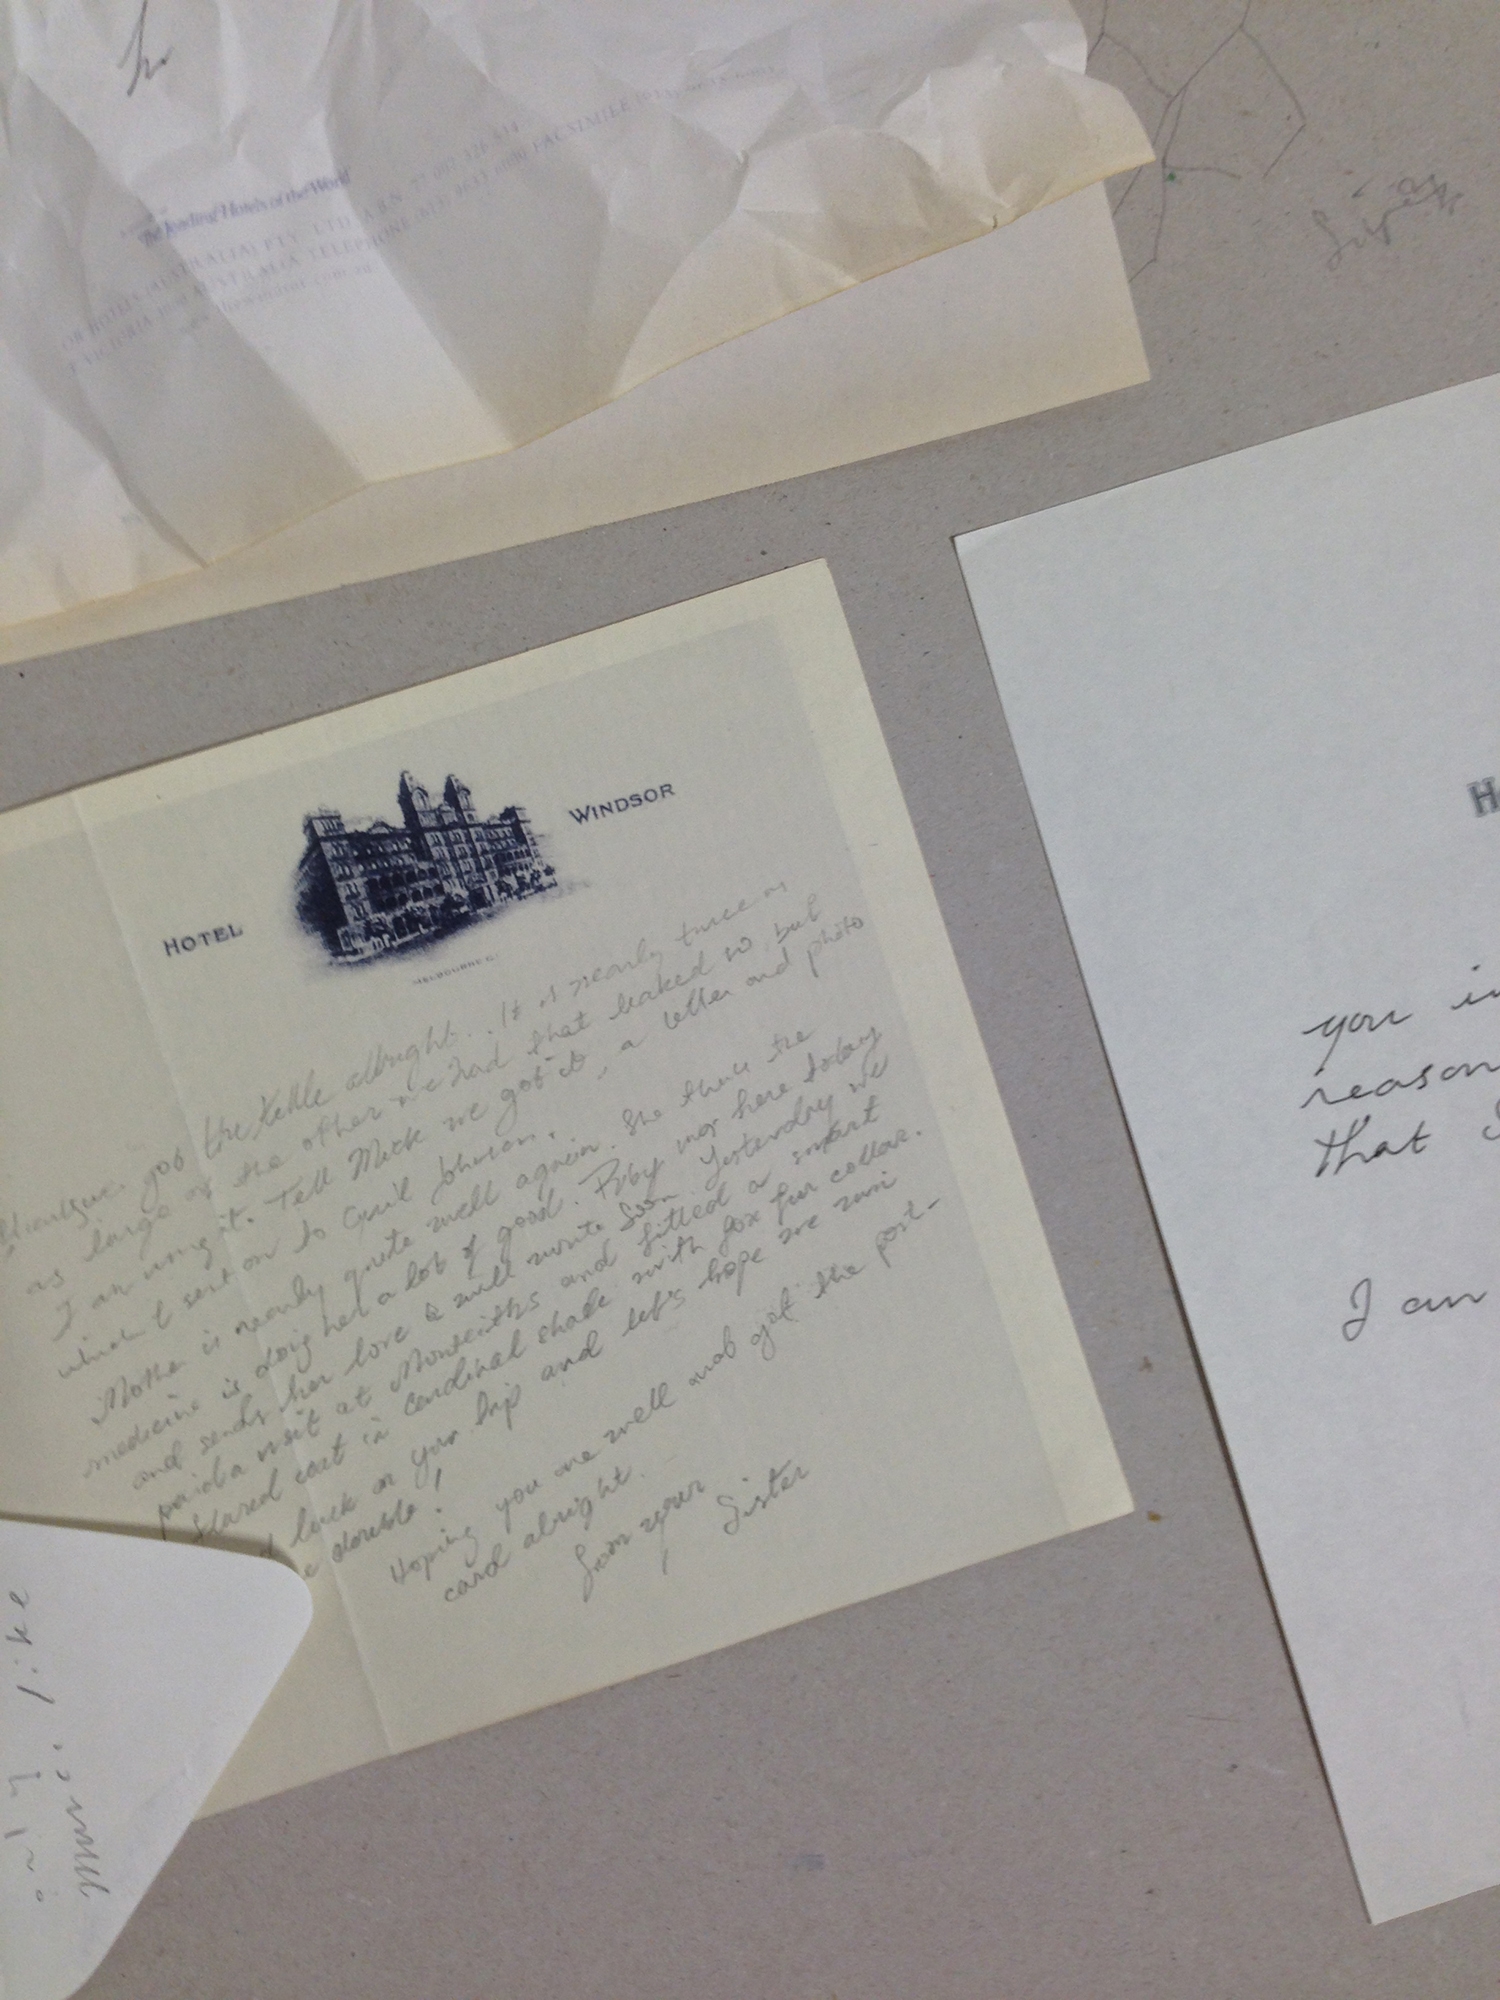 h
The leading Hotels of the World
HOTELS (AUSTRALIA) PTY LTD A.B.N.
VICTORIA 3000 AUSTRALIA TELEPHONE (613) 9633 6000 FACSIMILE
HOTEL WINDSOR
MELBOURNE
got the kettle allright. It is nearly twice as
as large as the other we had that leaked so but
I am using it. Tell Mick we got it, a letter and photo
which I sent on to
Mother is nearly quite well again. She thinks the
medicine is doing her a lot of good. Ruby was here today
and sends her love & will write soon. Yesterday we
paid a visit at Monteiths and fitted a smart
flared coat in Cardinal shade with fox fur collar.
luck on your trip and let's hope we win
double!
Hoping you are well and got the post-
card alright.
from your
Sister
only like
you in
reason
that
I am
H